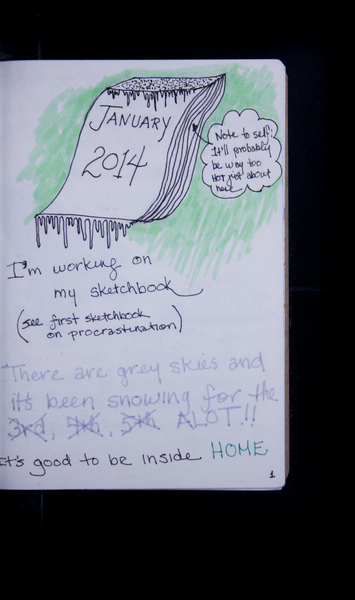 JANUARY
2014
Note to self:
It'll probably
be way too
HOT just about
here
I'm working on
my sketchbook
(see first sketchbook
on procrastination)
There are grey skies and
it's been snowing for the
3rd, 4th, 5th ALOT!!
It's good to be inside HOME
1